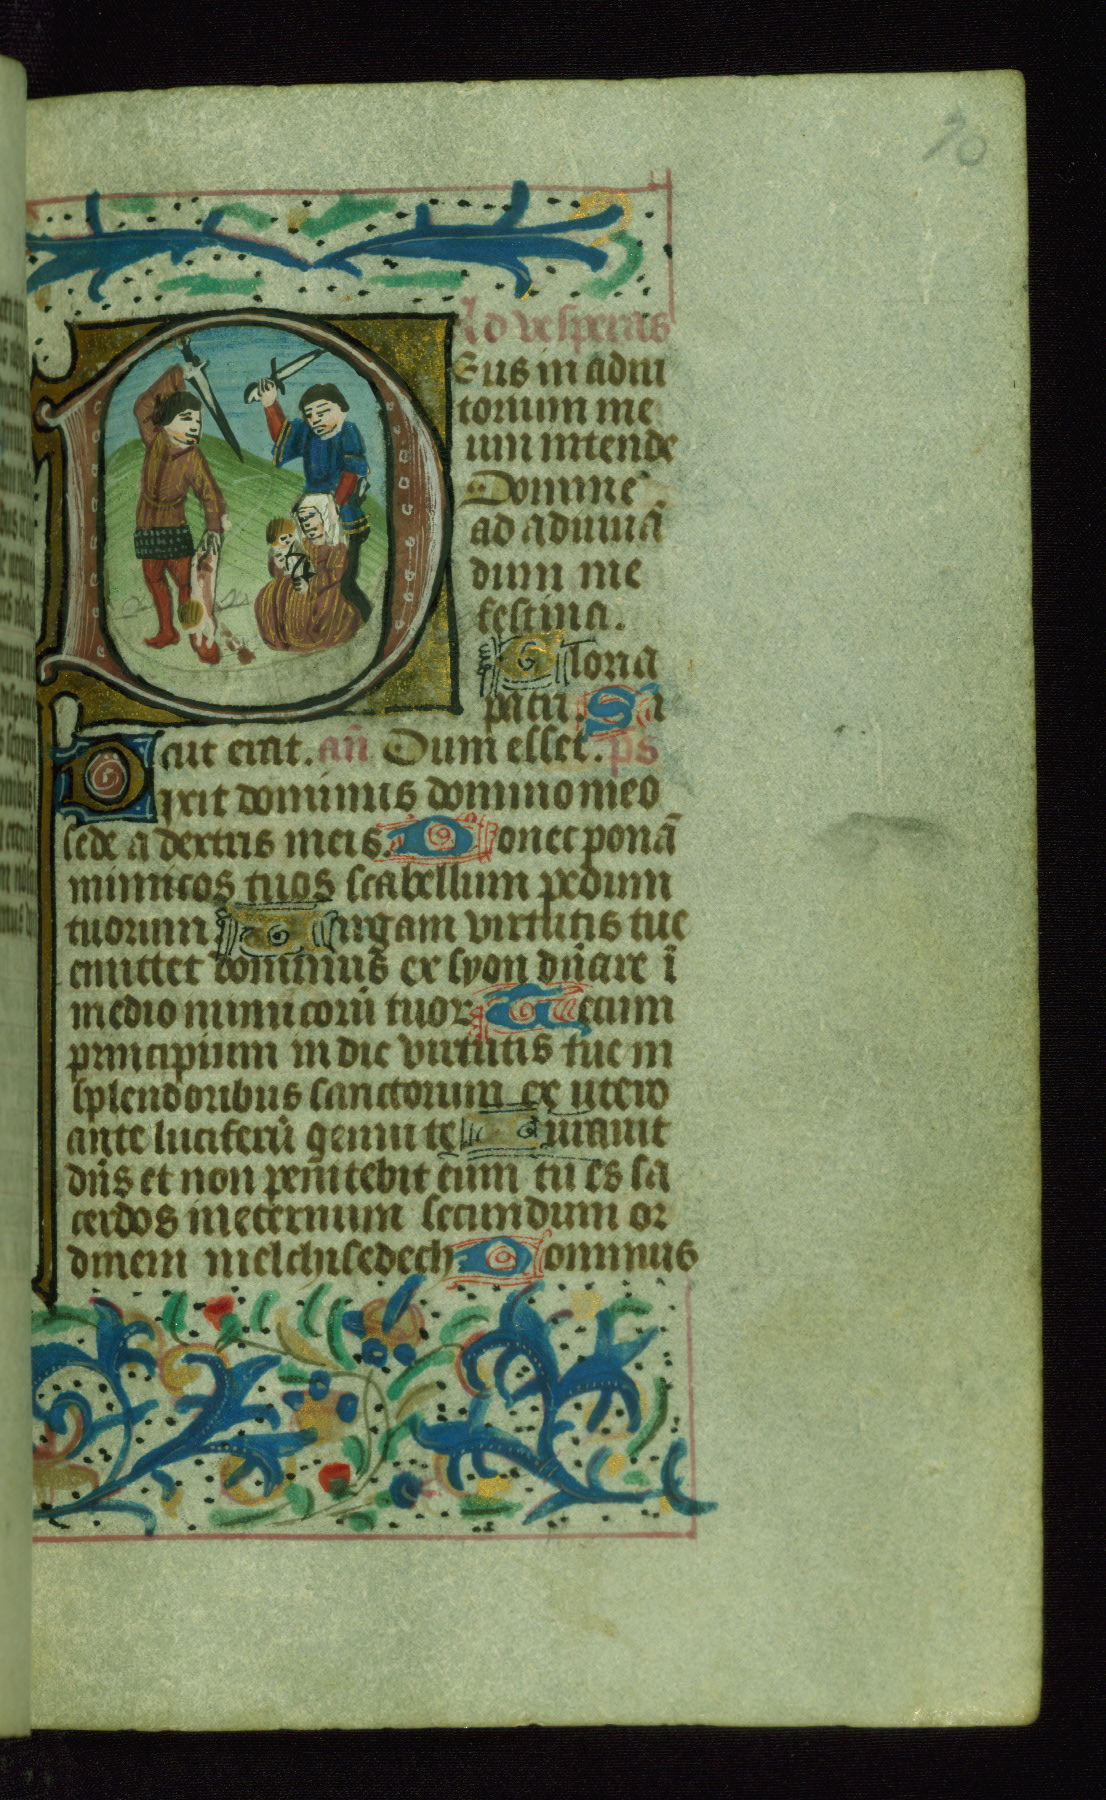 70
Ad vesperas
Deus in adiu
torium me
um intende
Domine
ad adiuuā
dum me
festina.
Gloria
patri. Si
cut erat. añ Dum esset. ps
Dixit dominus domino meo
sede a dextris meis. Donec ponā
inimicos tuos scabellum pedum
tuorum Virgam virtutis tue
emittet dominus ex syon dñare ī
medio inimicorū tuor Tecum
principium in die virtutis tue in
splendoribus sanctorum ex utero
ante luciferū genui te Iurauit
dñs et non penitebit eum tu es sa
cerdos ineternum secundum or
dinem melchisedech Dominus